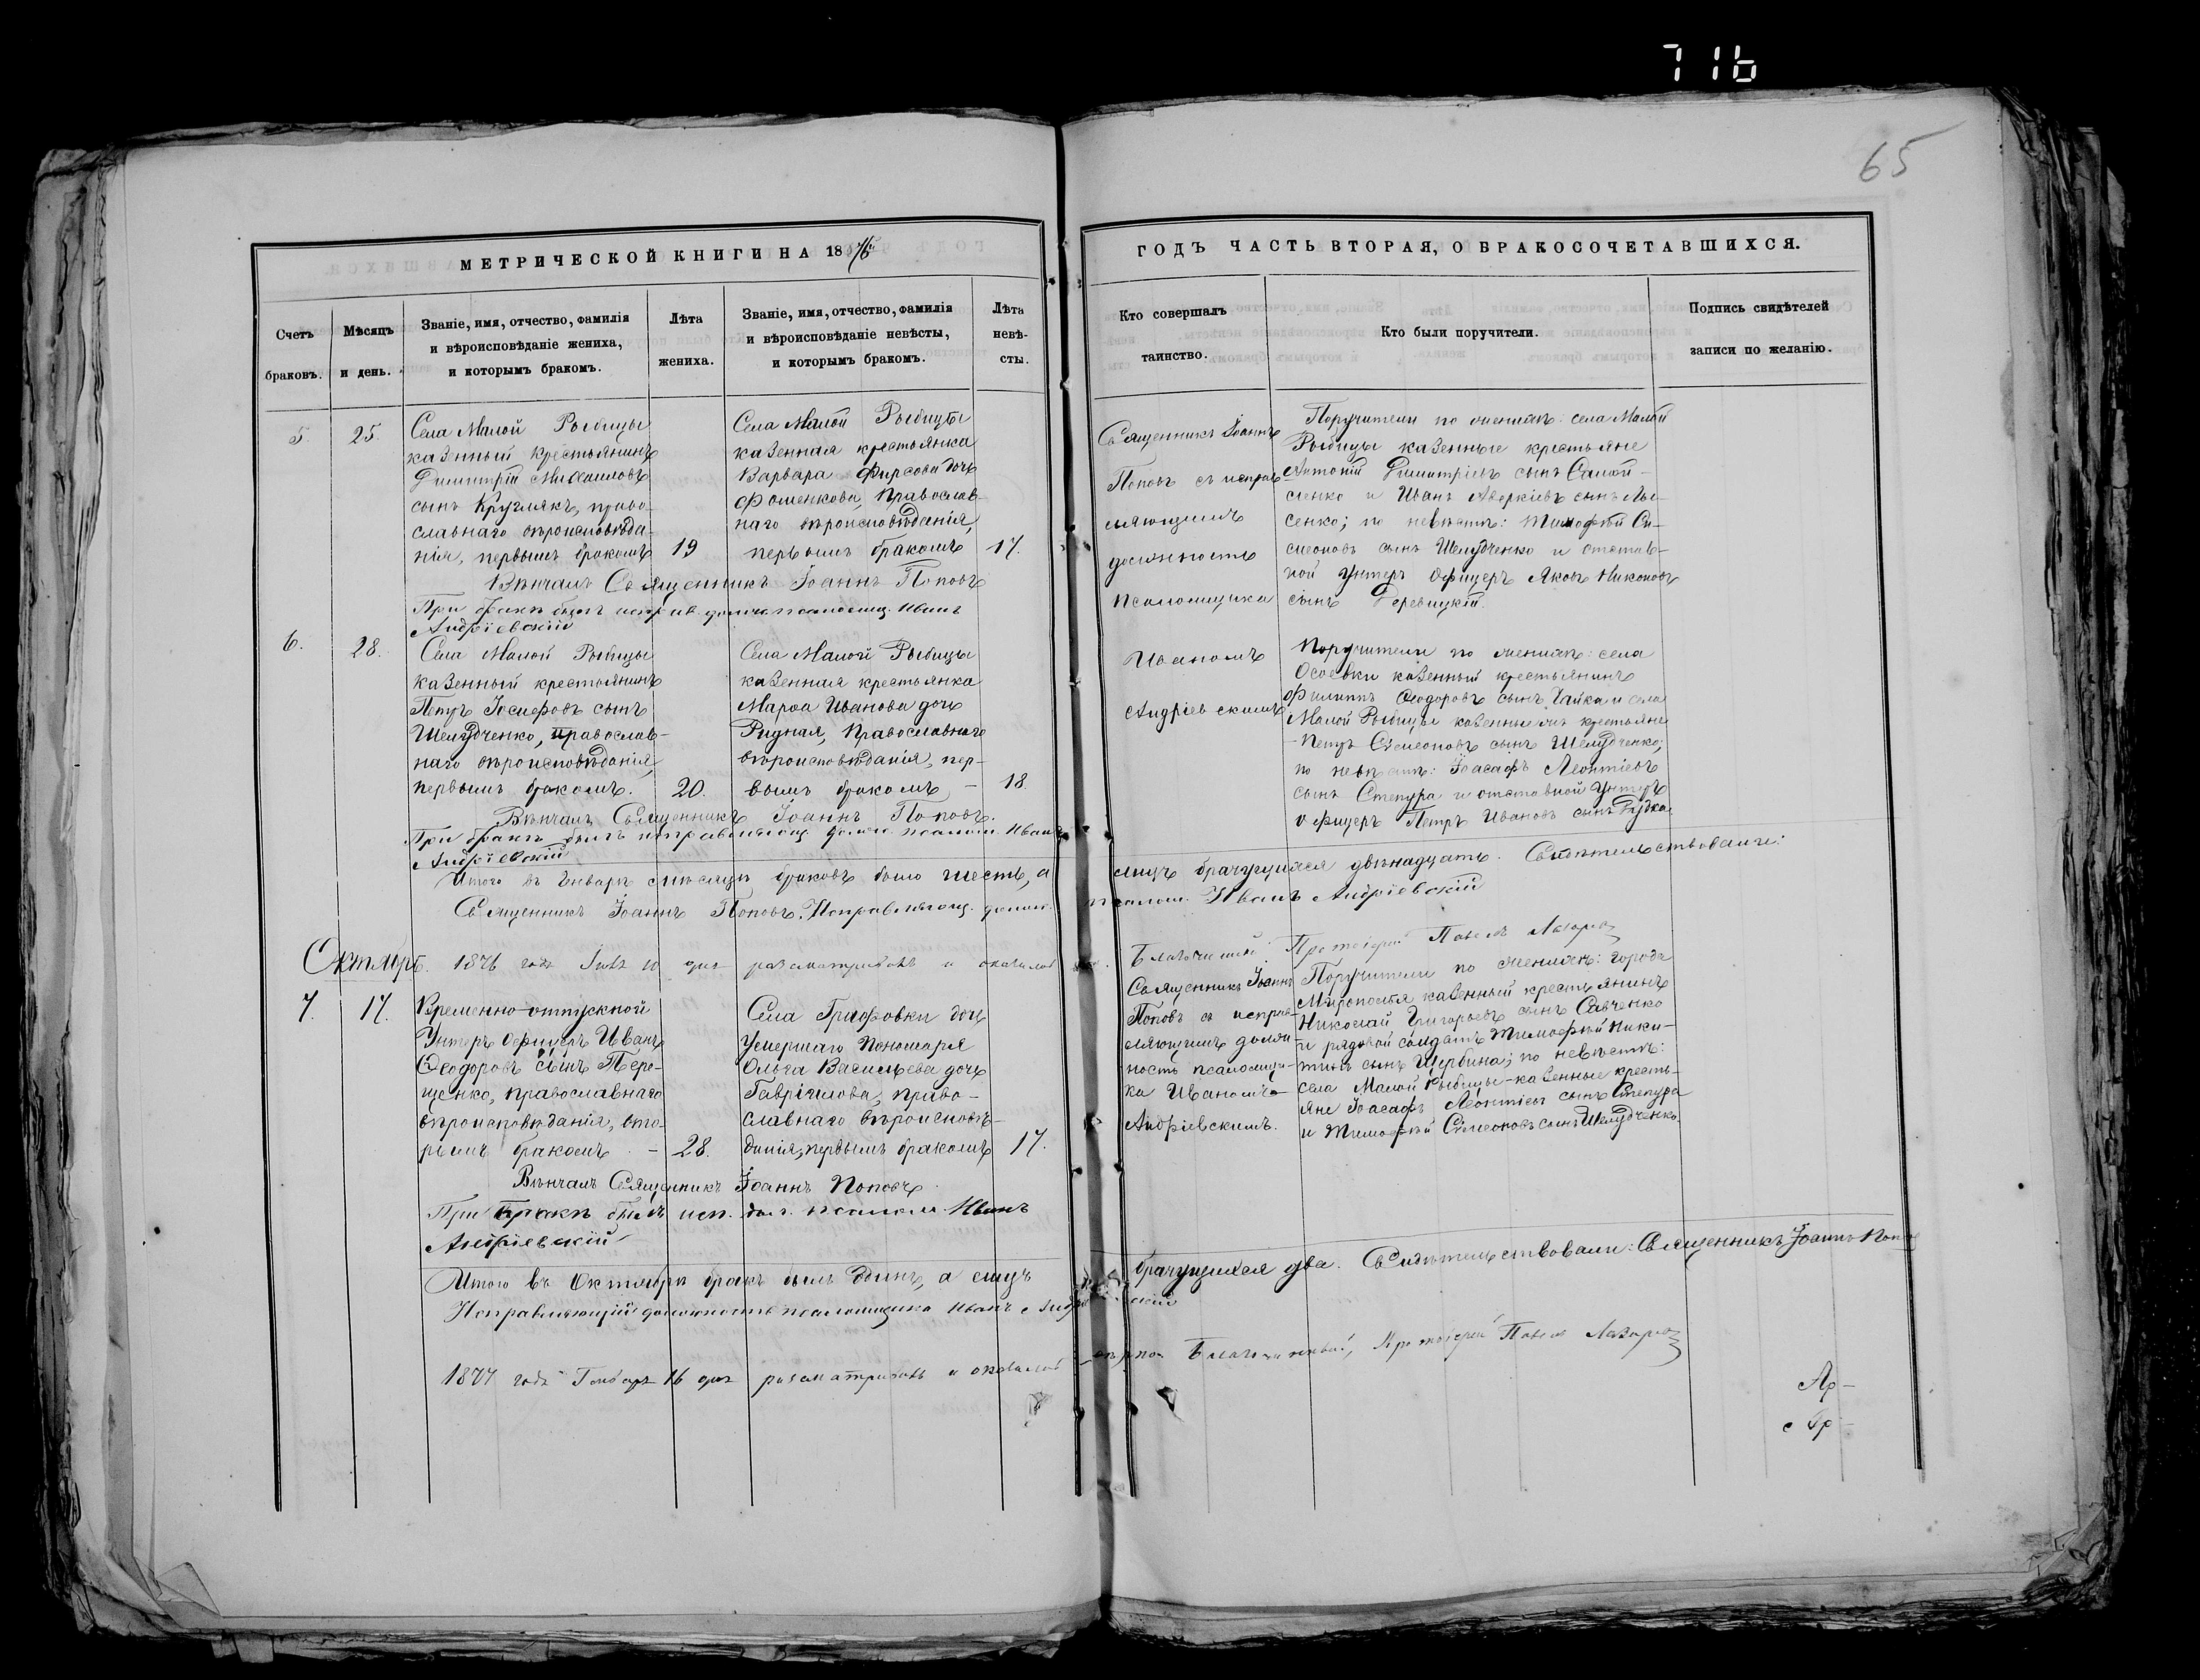 716
65
МЕТРИЧЕСКОЙ КНИГИ НА 1876
ГОДЪ ЧАСТЬ ВТОРАЯ, О БРАКОСОЧЕТАВШИХСЯ.
Счетъ
браковъ.
Мѣсяцъ
и день.
Званіе, имя, отчество, фамилія
и вѣроисповѣданіе жениха,
и которымъ бракомъ.
Лѣта
жениха.
Званіе, имя, отчество, фамилія
и вѣроисповѣданіе невѣсты,
и которымъ бракомъ.
Лѣта
невѣ-
сты.
Кто совершалъ
таинство.
Кто были поручители.
Подпись свидѣтелей
записи по желанію.
5.
25.
Села Малой Рыбицы
казенный крестьянинъ
Димитрій Михаиловъ
сынъ Круглякъ, право-
славнаго вѣроисповѣда-
нія, первымъ бракомъ
19
Села Малой Рыбицы
казенная крестьянка
Варвара Фирсова дочь
Фоменкова, Православ-
наго вѣроисповѣданія,
первымъ бракомъ
17.
Вѣнчалъ Священникъ Іоаннъ Поповъ
При бракѣ былъ исправ. должн. псаломщ. Иванъ
Андріевскій
Священникъ Іоаннъ
Поповъ съ исправ
ляющимъ
должность
псаломщика
Иваномъ
Андріевскимъ
Поручители по женихѣ: села Малой
Рыбицы казенные крестьяне
Антоній Димитріевъ сынъ Самой-
ленко и Иванъ Аверкіевъ сынъ Лы-
сенко; по невѣстѣ: Тимофѣй Си-
меоновъ сынъ Шелудченко и отстав-
ной Унтеръ Офицеръ Яковъ Никоновъ
сынъ Деревицкій.
6.
28.
Села Малой Рыбицы
казенный крестьянинъ
Петръ Іосифовъ сынъ
Шелудченко, православ-
наго вѣроисповѣданія,
первымъ бракомъ.
20.
Села Малой Рыбицы
казенная крестьянка
Марѳа Иванова дочь
Ридная, Православнаго
вѣроисповѣданія, пер-
вымъ бракомъ —
18.
Вѣнчалъ Священникъ Іоаннъ Поповъ.
При бракѣ былъ исправляющ. должн. псалом. Иванъ
Андріевскій
Поручители по женихѣ: села
Осоевки казенный крестьянинъ
Филиппъ Ѳеодоровъ сынъ Чайка и села
Малой Рыбицы казенные крестьяне
Петръ Сѵмеоновъ сынъ Шелудченко;
по невѣстѣ: Іоасафъ Леонтіевъ
сынъ Степура и отставной Унтеръ
Офицеръ Петръ Ивановъ сынъ
Итого въ Январѣ мѣсяцѣ браковъ было шесть, а
лицъ брачущихся двѣнадцать. Свидѣтельствовали:
Священникъ Іоаннъ Поповъ. Исправляющ. должн.
псалом. Иванъ Андріевскій
1876 года 10 дня разсматривалъ и
Благочинный Протоіерей Павелъ
Октябрь.
7.
17.
Временно-отпускной
Унтеръ Офицеръ Иванъ
Ѳеодоровъ сынъ Тере-
щенко, православнаго
вѣроисповѣданія, вто-
рымъ бракомъ —
28.
Села Грифовки дочь
Умершаго Пономаря
Ольга Васильева дочь
Гаврилова, право-
славнаго вѣроисповѣ-
данія, первымъ бракомъ
17.
Вѣнчалъ Священникъ Іоаннъ Поповъ
При бракѣ былъ исп. дол. псалом. Иванъ
Андріевскій
Священникъ Іоаннъ
Поповъ съ исправ-
ляющимъ долж-
ность псаломщи-
ка Иваномъ
Андріевскимъ.
Поручители по женихѣ: города
Мирополья казенный крестьянинъ
Николай Григорьевъ сынъ Савченко
и рядовой солдатъ Тимофѣй Ники-
тинъ сынъ Щербина; по невѣстѣ:
села Малой Рыбицы казенные кресть-
яне Іоасафъ Леонтіевъ сынъ Степура
и Тимофѣй Сѵмеоновъ сынъ Шелудченко.
Итого въ Октябрѣ бракъ былъ одинъ, а лицъ
брачущихся два. Свидѣтельствовали: Священникъ Іоаннъ Поповъ
Исправляющій должность псаломщика Иванъ Андріевскій
1877 года Генваря 16 дня разсматривалъ и
Благочинный, Протоіерей Павелъ